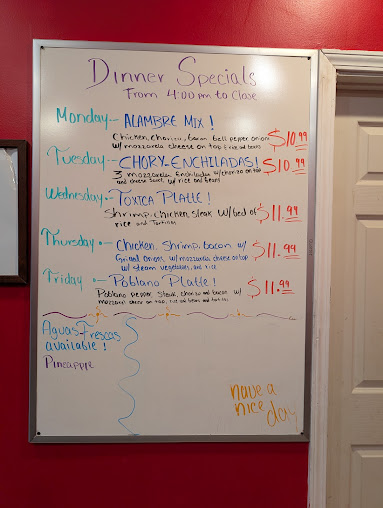 Dinner Specials
From 4:00 pm to Close
Monday - ALAMBRE MIX !
Chicken, chorizo, bacon bell pepper onion
w/ mozzarella cheese on top rice and beans
$10.99
Tuesday - CHORY-ENCHILADAS!
3 mozzarella Enchiladas w/ chorizo on top
and cheese sauce, w/ rice and beans
$10.99
Wednesday - TOXICA PLATTE !
Shrimp, chicken, steak w/ bed of
rice and Tortillas
$11.99
Thursday - Chicken, Shrimp, bacon w/
Grilled onions w/ mozzarella cheese on top
w/ steam vegetables, and rice
$11.99
Friday - Poblano Platte !
Poblano pepper, Steak, chorizo and bacon w/
mozzarella cheese on top, rice and beans and tortillas
$11.99
Aguas Frescas
available !
Pineapple
have a
nice day